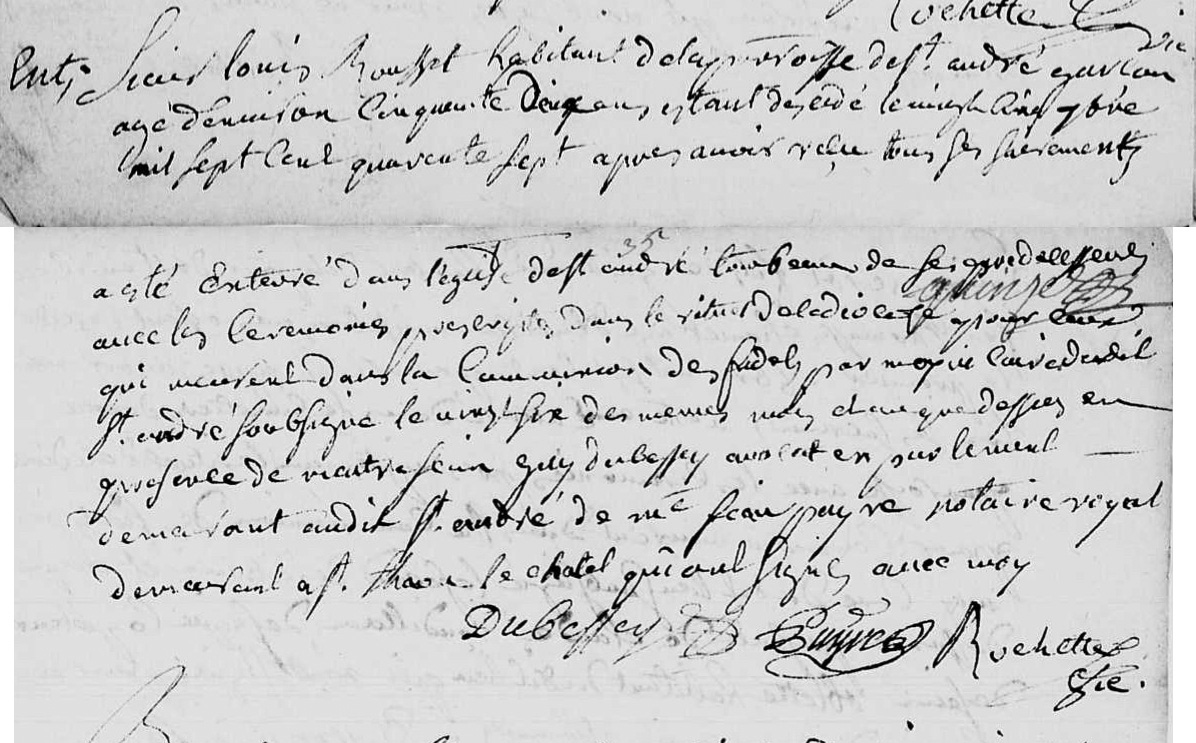 Rochette
vic
Ent; Sieur louis Rousset habitant de la parroisse de st. andré garcon
agé denviron cinquante deux ans estant decedé le vingt cinq 9bre
mil sept cent quarente sept apres avoir reçu tous ses sacrements
35
a esté Enterré dans l'eglise de st andré tombeau de ses predecesseurs
avec les Ceremonies prescriptes dans le rituel de la dioceze pour ceux
qui meurent dans la Communion des fidels par moy vicaire dudit
st. andré soubsigné le vingt six des memes mois et an que dessus en
presence de maitre jean guy dubessey avocat en parlement
demeurant audit st. andré de me jean puyre notaire royal
demeurant a st. haon le chatel qui ont signés avec moy
DuBessey Puyre Rochette
vic.